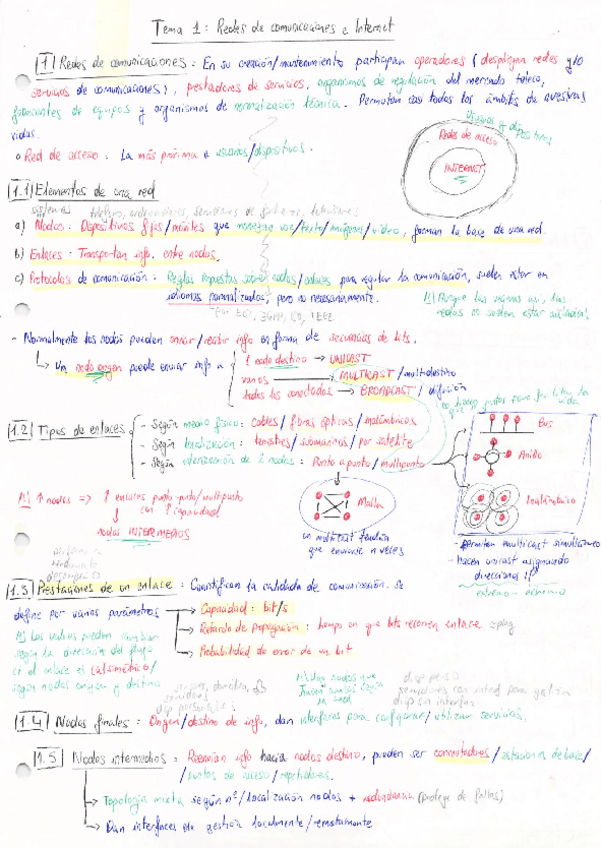 Tema 1: Redes de comunicaciones e Internet
1 Redes de comunicaciones: En su creación/mantenimiento participan operadores (despliegan redes y/o
servicios de comunicaciones), prestadores de servicios, organismos de regulación del mercado
fabricantes de equipos y organismos de normalización técnica. Permiten casi todos los ámbitos de nuestras
vidas.
usuarios y dispositivos
Redes de acceso
INTERNET
Red de acceso: La más próxima a usuarios/dispositivos.
1.1 Elementos de una red
sistemas teléfono, ordenadores, servidores de ficheros, televisiones
a) Nodos: Dispositivos fijos/móviles que manejan voz/texto/imágenes/video, forman la base de una red.
b) Enlaces: Transportan info. entre nodos.
c) Protocolos de comunicación: Reglas impuestas sobre nodos/enlaces para regular la comunicación, suelen estar en
idiomas normalizados, pero no necesariamente.
3GPP, ISO, IEEE
redes no suelen estar aisladas
- Normalmente los nodos pueden enviar/recibir info en forma de secuencias de bits.
Un nodo origen puede enviar info a
1 nodo destino → UNICAST
varios → MULTICAST/multidestino
todos los conectados → BROADCAST/difusión
1.2 Tipos de enlaces
- Según medio físico: cables/fibras ópticas/inalámbricos
- Según localización: terrestres/submarinos/por satélite
- Según interconexión de 2 nodos: Punto a punto/multipunto
Bus
Anillo
Inalámbrico
Malla
en multicast tendría
que enviarse n veces
↑ nodos => ↑ enlaces punto-punto/multipunto
con ↑ capacidad
nodos INTERMEDIOS
- permiten multicast simultáneo
- hacen unicast asignando
direcciones
extremo - extremo
1.3 Prestaciones de un enlace: Cuantifican la calidad de comunicación. Se
define por varios parámetros
→ Capacidad: bit/s
→ Retardo de propagación: tiempo en que bits recorren enlace
→ Probabilidad de error de un bit
Los valores pueden cambiar
según la dirección del flujo
si el enlace es (a)simétrico/
según nodos origen y destino
1.4 Nodos finales: Origen/destino de info, dan interfaces para configurar/utilizar servicios.
1.5 Nodos intermedios: Reenvían info hacia nodos destino, pueden ser conmutadores/estaciones de base/
/puntos de acceso/repetidores.
→ Topología mixta según nº/localización nodos + redundancia (protege de fallos)
→ Dan interfaces de gestión localmente/remotamente